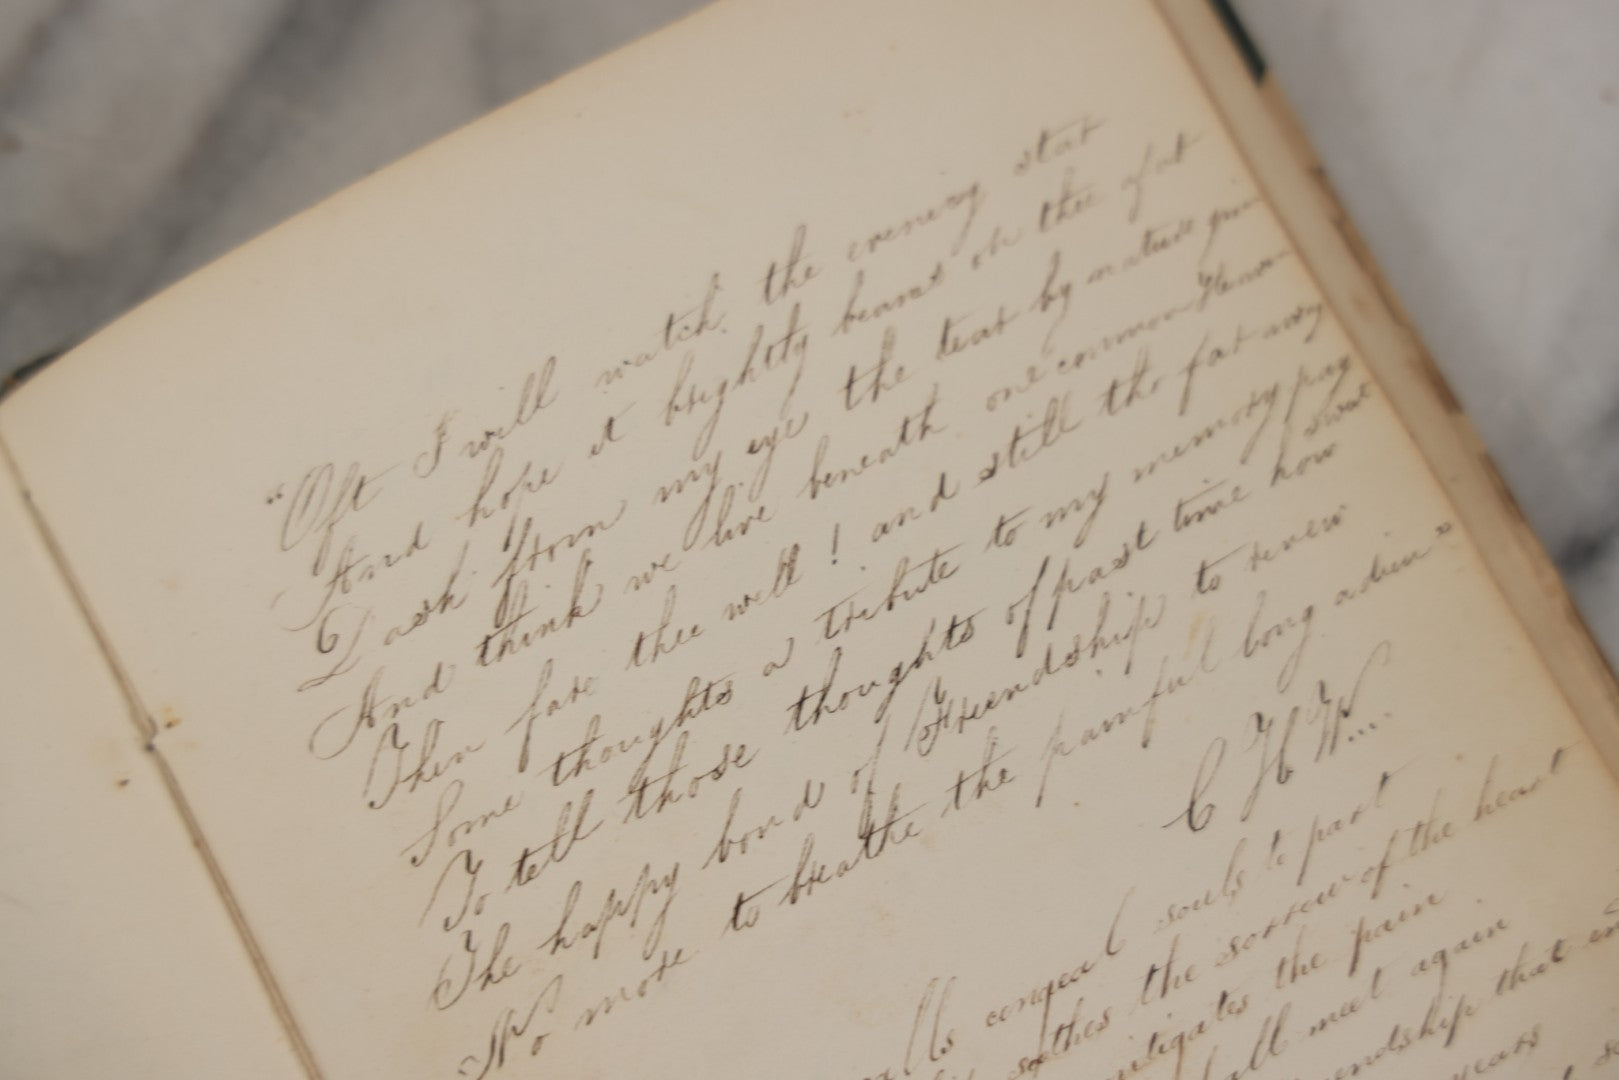 "Oft I will watch the evening star
And hope it brightly beams on thee afar
Dash from my eye the tear by nature
And think we live beneath one common Heaven
Then fare thee well! and still tho far away
Some thoughts a tribute to my memory pay
sweet
To tell those thoughts of past time how
The happy bond of Friendship to renew
No more to breathe the painful long adieu"
C H W...
congeal souls to part
soothes the sorrow of the heart
mitigates the pain
meet again
that
years